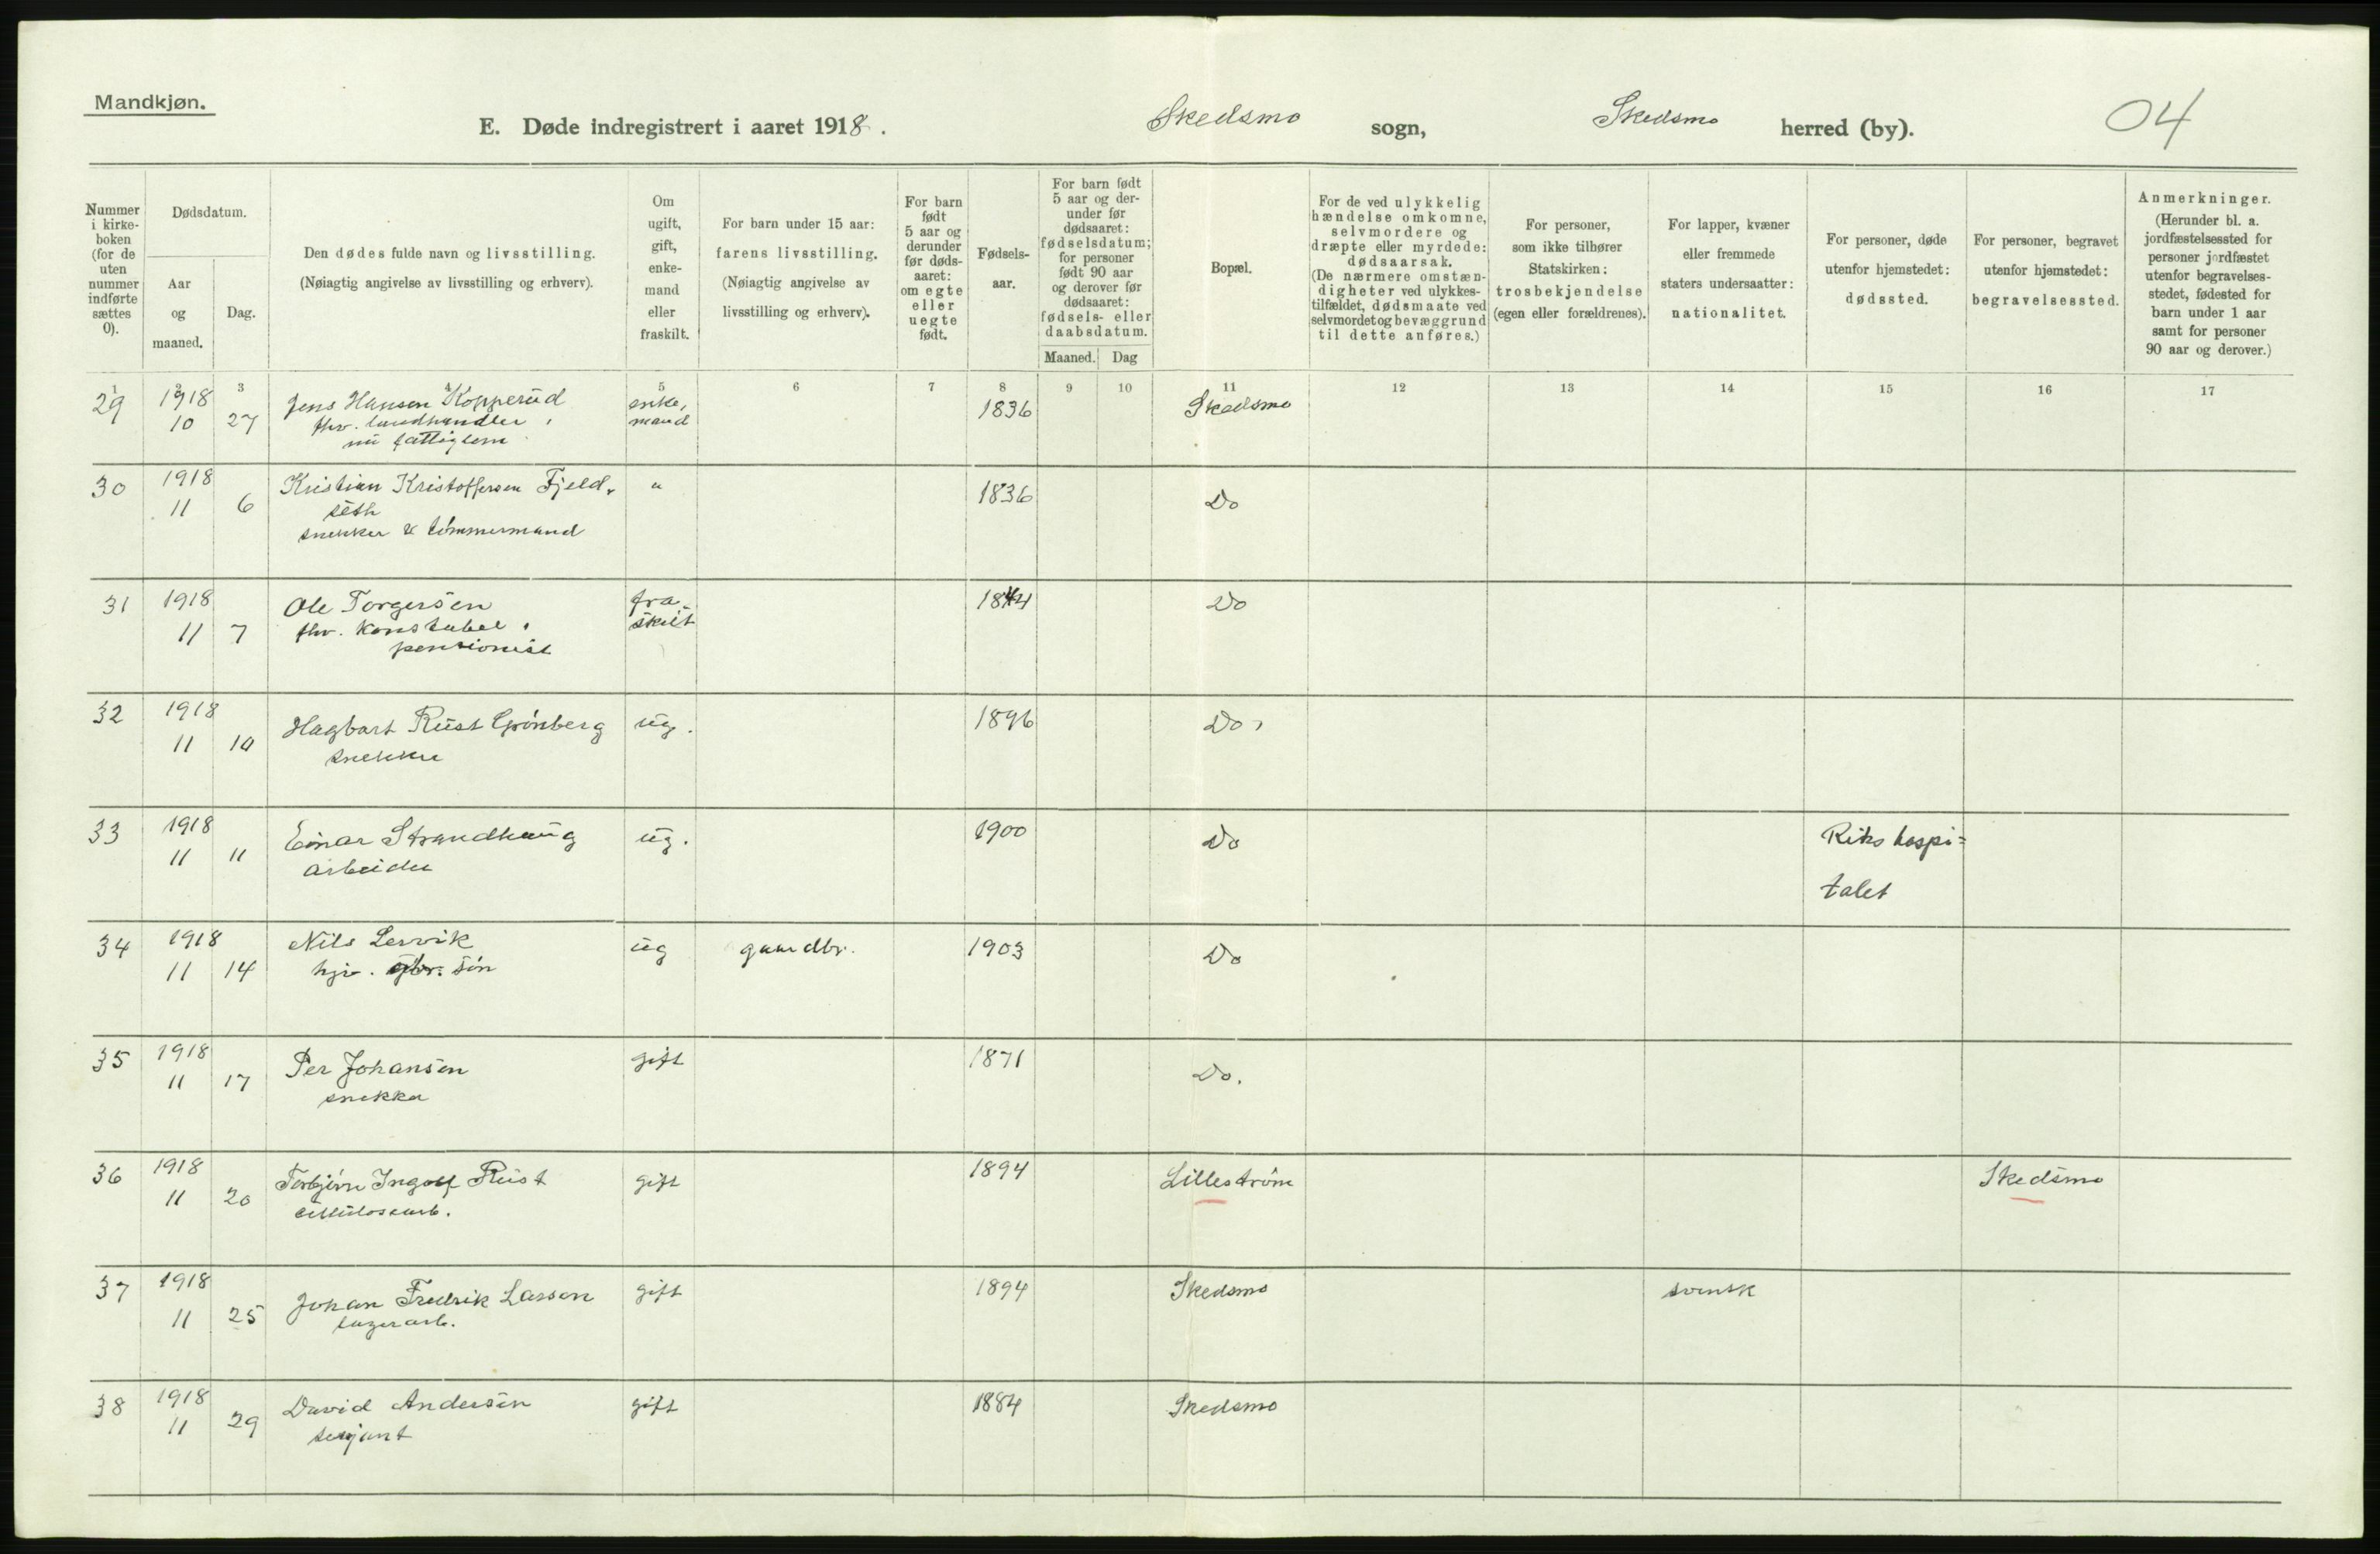 Mandkjøn.
E. Døde indregistrert i aaret 1918. Skedsmo sogn, Skedsmo herred (by). 04
Nummer i kirke- boken (for de uten nummer indførte sættes 0).
Dødsdatum.
Aar og maaned.
Dag.
Den dødes fulde navn og livsstilling.
(Nøiagtig angivelse av livsstilling og erhverv).
Om ugift, gift, enke- mand eller fraskilt.
For barn under 15 aar:
farens livsstilling.
(Nøiagtig angivelse av
livsstilling og erhverv).
For barn født 5 aar og derunder før døds- aaret: om egte eller uegte født.
Fødsels- aar.
For barn født 5 aar og der- under før dødsaaret: fødselsdatum; for personer født 90 aar og derover før dødsaaret: fødsels- eller daabsdatum.
Maaned. Dag
Bopæl.
For de ved ulykkelig hændelse omkomne, selvmordere og dræpte eller myrdede: dødsaarsak. (De nærmere omstæn- digheter ved ulykkes- tilfældet, dødsmaate ved selvmordet og bevæggrund til dette anføres.)
For personer, som ikke tilhører Statskirken: trosbekjendelse (egen eller forældrenes).
For lapper, kvæner eller fremmede staters undersaatter: nationalitet.
For personer, døde utenfor hjemstedet: dødssted.
For personer, begravet utenfor hjemstedet: begravelsessted.
Anmerkninger. (Herunder bl. a. jordfæstelsessted for personer jordfæstet utenfor begravelses- stedet, fødested for barn under 1 aar samt for personer 90 aar og derover.)
1 2 3 4 5 6 7 8 9 10 11 12 13 14 15 16 17
29 1918 Jens Hansen Kopperud enke, 1836 Skedsmo
10 27 fhv. landhandler, mand
nu fattiglem
30 1918 Kristian Kristoffersen Fjeld- " 1836 Do
11 6 seth
snekker & tømmermand
31 1918 Ole Torgersen fra- 1844 Do
11 7 fhv. konstabel, skilt
pensionist
32 1918 Hagbart Rust Grønberg ug. 1896 Do,
11 10 snekker
33 1918 Einar Strandhaug ug. 1900 Do Riks hospi=
11 11 arbeider talet
34 1918 Nils Lervik ug gaardbr. 1903 Do
11 14 hjv. gbr. søn
35 1918 Per Johansen gift 1871 Do.
11 17 snekker
36 1918 Torbjørn Ingolf Rust gift 1894 Lillestrøm Skedsmo
11 20 cellulosearb.
37 1918 Johan Fredrik Larsson gift 1894 Skedsmo svensk
11 25 lagerarb.
38 1918 David Andersen gift 1884 Skedsmo
11 29 serjant